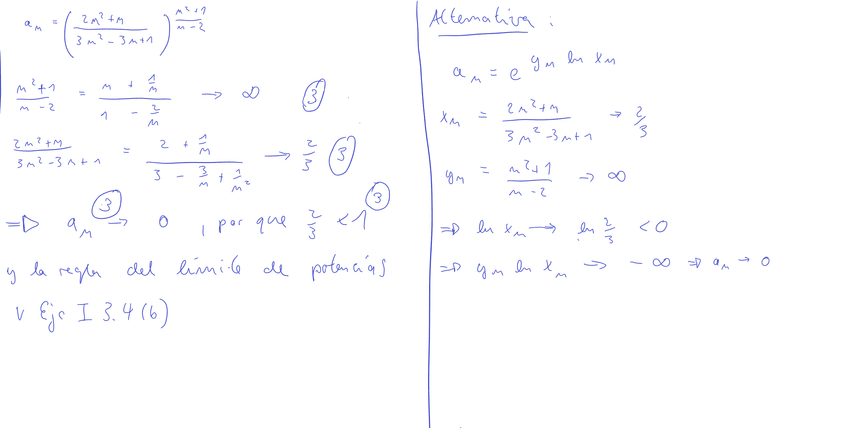 a_n = ( (2n²+n)/(3n²-3n+1) )^((n²+1)/(n-2))
(n²+1)/(n-2) = (n + 1/n)/(1 - 2/n) → ∞ (3)
(2n²+n)/(3n²-3n+1) = (2 + 1/n)/(3 - 3/n + 1/n²) → 2/3 (3)
⇒ a_n → 0 (3) , por que 2/3 < 1 (3)
y la regla del límite de potencias
v Ejc I 3.4 (b)
Alternativa :
a_n = e^(y_n ln x_n)
x_n = (2n²+n)/(3n²-3n+1) → 2/3
y_n = (n²+1)/(n-2) → ∞
⇒ ln x_n → ln 2/3 < 0
⇒ y_n ln x_n → -∞ ⇒ a_n → 0